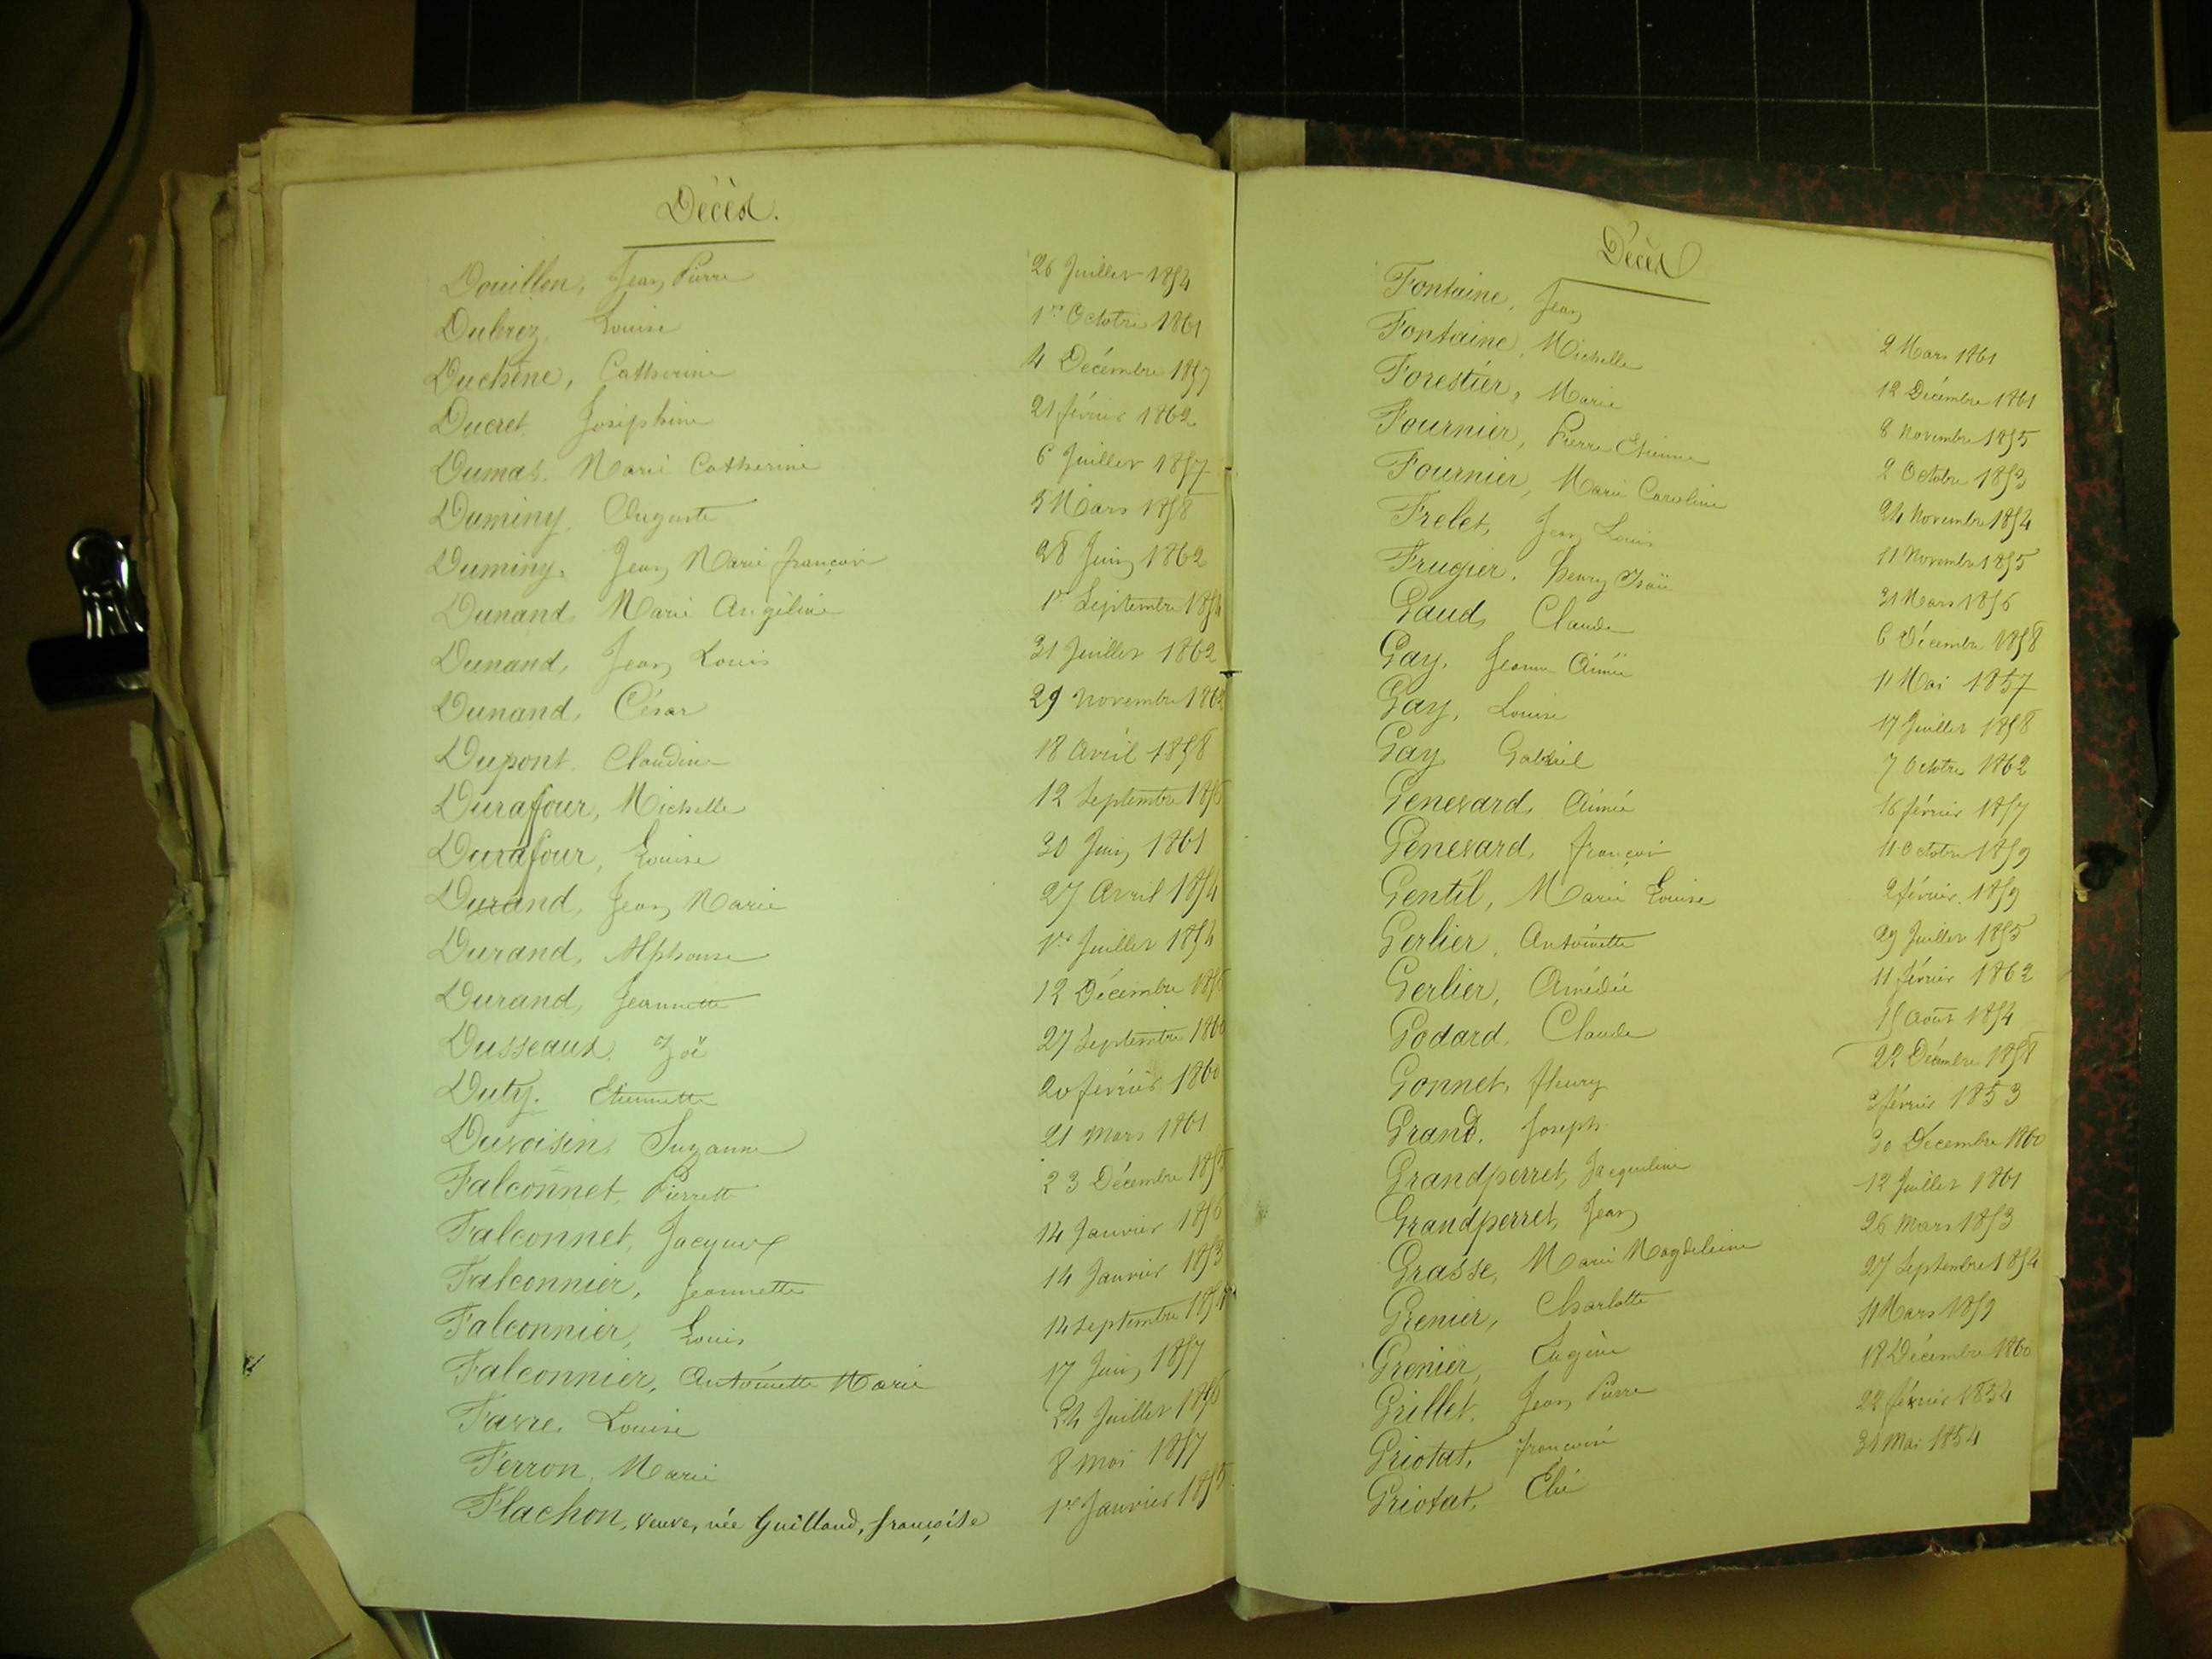 Décès.
Douillon, Jean Pierre 26 Juillet 1854
Dubrez, Louise 1er Octobre 1861
Duchêne, Catherine 4 Décembre 1857
Ducret Joséphine 21 février 1862
Dumas, Marie Catherine 6 Juillet 1857
Duminy, Auguste 5 Mars 1858
Duminy, Jean Marie françois 28 Juin 1862
Dunand, Marie Angéline 1er Septembre 1854
Dunand, Jean Louis 31 Juillet 1862
Dunand, César 29 novembre 1862
Dupont, Claudine 18 Avril 1858
Duraffour, Michelle 12 Septembre
Durafour, Louise 30 Juin 1861
Durand, Jean Marie 27 Avril 1854
Durand, Alphonse 1er Juillet 1854
Durand, Jeannette 12 Décembre
Dusseaux, Zoë 27 Septembre 1860
Duty, Etiennette 20 février 1860
Duvoisin, Suzanne 21 Mars 1861
Falconnet, Pierrette 23 Décembre
Falconnet, Jacques 14 Janvier 1856
Falconnier, Jeannette 14 Janvier 1853
Falconnier, Louis 14 Septembre
Falconnier, Antoinette Marie 17 Juin 1857
Favre, Louise 24 Juillet 1856
Ferron, Marie 8 Mai 1857
Flachon, veuve, née Guilland, françoise 1er Janvier 1855
Décès
Fontaine, Jean 2 Mars 1861
Fontaine, Michelle 12 Décembre 1861
Forestier, Marie 8 Novembre 1855
Fournier, Pierre Etienne 2 Octobre 1853
Fournier, Marie Caroline 24 Novembre 1854
Frelet, Jean Louis 11 Novembre 1855
Frugier, henry 31 Mars 1856
Gaud, Claude 6 Décembre 1858
Gay, Jeanne Aimée 11 Mai 1857
Gay, Louise 17 Juillet 1858
Gay Gabriel 7 Octobre 1862
Genevard, Aimée 16 février 1857
Genevard, françois 11 Octobre 1859
Gentil, Marie Louise 2 février 1859
Gerlier, Antoinette 29 Juillet 1855
Gerlier, Amédée 11 février 1862
Godard, Claude 15 Août 1854
Gonnet, fleury 22 Décembre 1858
Grand, Joseph 2 février 1853
Grandperret, Jacqueline 30 Décembre 1860
Grandperret, Jean 12 Juillet 1861
Grasse, Marie Magdeleine 26 Mars 1853
Grenier, Charlotte 27 Septembre 1854
Grenier, Eugène 11 Mars 1859
Grillet, Jean Pierre 18 Décembre 1860
Griotat, françoise 22 février 1854
Griotat, Elie 31 Mai 1854